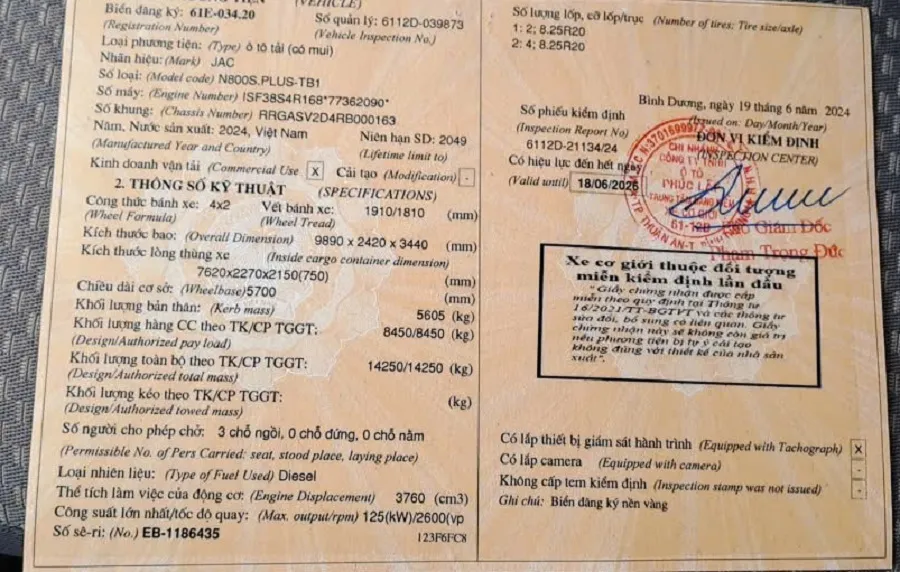 (VEHICLE)
Biển đăng ký: 61E-034.20
(Registration Number)
Số quản lý: 6112D-039873
(Vehicle Inspection No.)
Loại phương tiện: (Type) ô tô tải (có mui)
Nhãn hiệu: (Mark) JAC
Số loại: (Model code) N800S.PLUS-TB1
Số máy: (Engine Number) ISF38S4R168*77362090*
Số khung: (Chassis Number) RRGASV2D4RB000163
Năm, Nước sản xuất: 2024, Việt Nam
(Manufactured Year and Country)
Niên hạn SD: 2049
(Lifetime limit to)
Kinh doanh vận tải (Commercial Use) X Cải tạo (Modification) -
2. THÔNG SỐ KỸ THUẬT (SPECIFICATIONS)
Công thức bánh xe: 4x2 Vết bánh xe: 1910/1810 (mm)
(Wheel Formula) (Wheel Tread)
Kích thước bao: (Overall Dimension) 9890 x 2420 x 3440 (mm)
Kích thước lòng thùng xe (Inside cargo container dimension)
7620x2270x2150(750) (mm)
Chiều dài cơ sở: (Wheelbase) 5700 (mm)
Khối lượng bản thân: (Kerb mass) 5605 (kg)
Khối lượng hàng CC theo TK/CP TGGT: 8450/8450 (kg)
(Design/Authorized pay load)
Khối lượng toàn bộ theo TK/CP TGGT: 14250/14250 (kg)
(Design/Authorized total mass)
Khối lượng kéo theo TK/CP TGGT: (kg)
(Design/Authorized towed mass)
Số người cho phép chở: 3 chỗ ngồi, 0 chỗ đứng, 0 chỗ nằm
(Permissible No. of Pers Carried: seat, stood place, laying place)
Loại nhiên liệu: (Type of Fuel Used) Diesel
Thể tích làm việc của động cơ: (Engine Displacement) 3760 (cm3)
Công suất lớn nhất/tốc độ quay: (Max. output/rpm) 125(kW)/2600(vp
Số sê-ri: (No.) EB-1186435 123F6FC8
Số lượng lốp, cỡ lốp/trục (Number of tires; Tire size/axle)
1: 2; 8.25R20
2: 4; 8.25R20
Bình Dương, ngày 19 tháng 6 năm 2024
(Issued on: Day/Month/Year)
Số phiếu kiểm định
(Inspection Report No)
6112D-21134/24
ĐƠN VỊ KIỂM ĐỊNH
(INSPECTION CENTER)
Có hiệu lực đến hết ngày
(Valid until) 18/06/2026
CHI NHÁNH
CÔNG TY TNHH
Ô TÔ
PHÚC
TRUNG TÂM ĐĂNG KIỂM
XE CƠ GIỚI
61-12D
Phó Giám Đốc
Phạm Trọng Đức
Xe cơ giới thuộc đối tượng
miễn kiểm định lần đầu
"Giấy chứng nhận được cấp
miễn theo quy định tại Thông tư
16/2021/TT-BGTVT và các thông tư
sửa đổi, bổ sung có liên quan. Giấy
chứng nhận này sẽ không còn giá trị
nếu phương tiện bị tự ý cải tạo
không đúng với thiết kế của nhà sản
xuất".
Có lắp thiết bị giám sát hành trình (Equipped with Tachograph) X
Có lắp camera (Equipped with camera) -
Không cấp tem kiểm định (Inspection stamp was not issued) -
Ghi chú: Biển đăng ký nền vàng